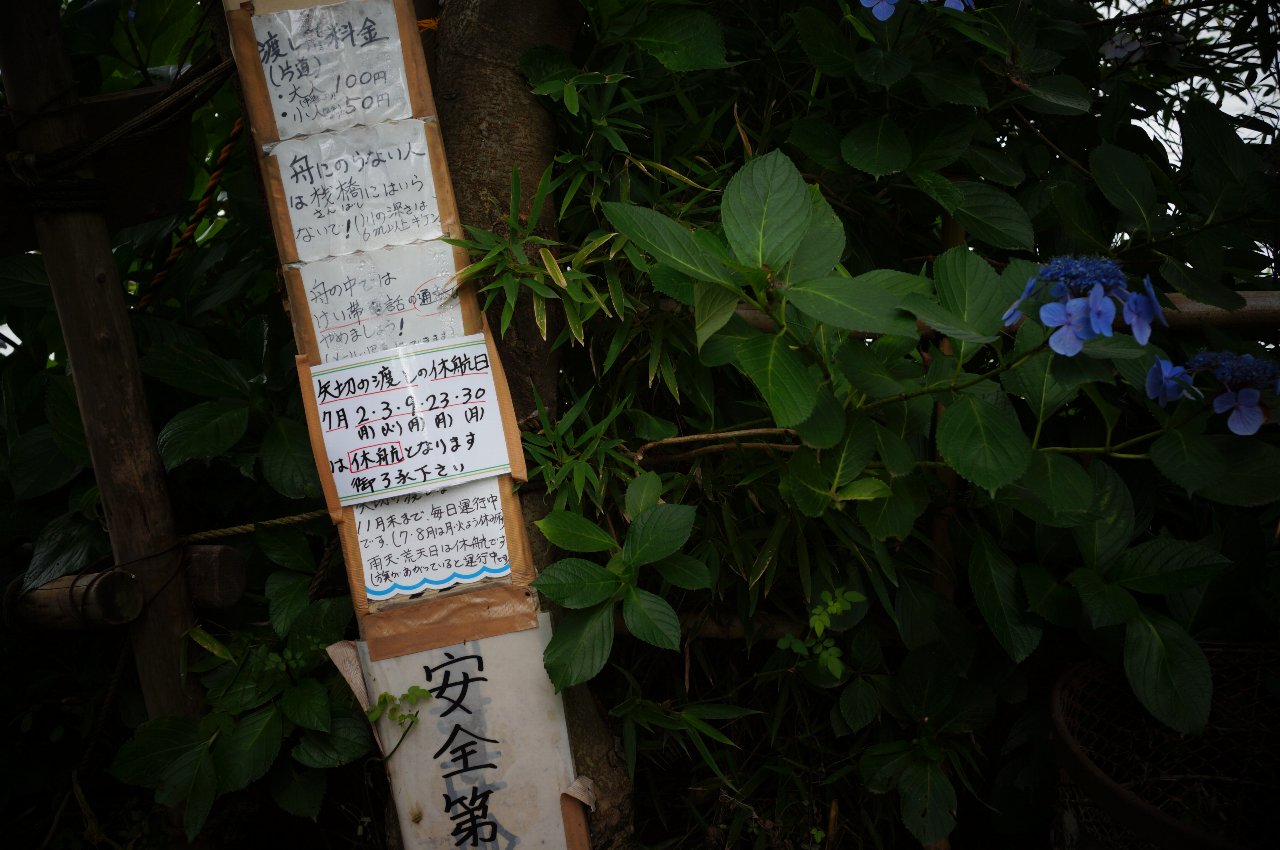 渡し船料金
(片道)
・大人 100円
・小人 50円
舟にのらない人
は桟橋にはいら
さんばし
ないで!
舟の中では
けい帯電話の通話
やめましょう!
矢切の渡しの休航日
7月2・3・9・23・30
(月)(火)(月)(月)(月)
は休航となります
御了承下さい
11月末まで、毎日運行中
です。(7・8月は月・火よう休み有
雨天・荒天日は休航です
(旗があがっていると運行中です
安全第